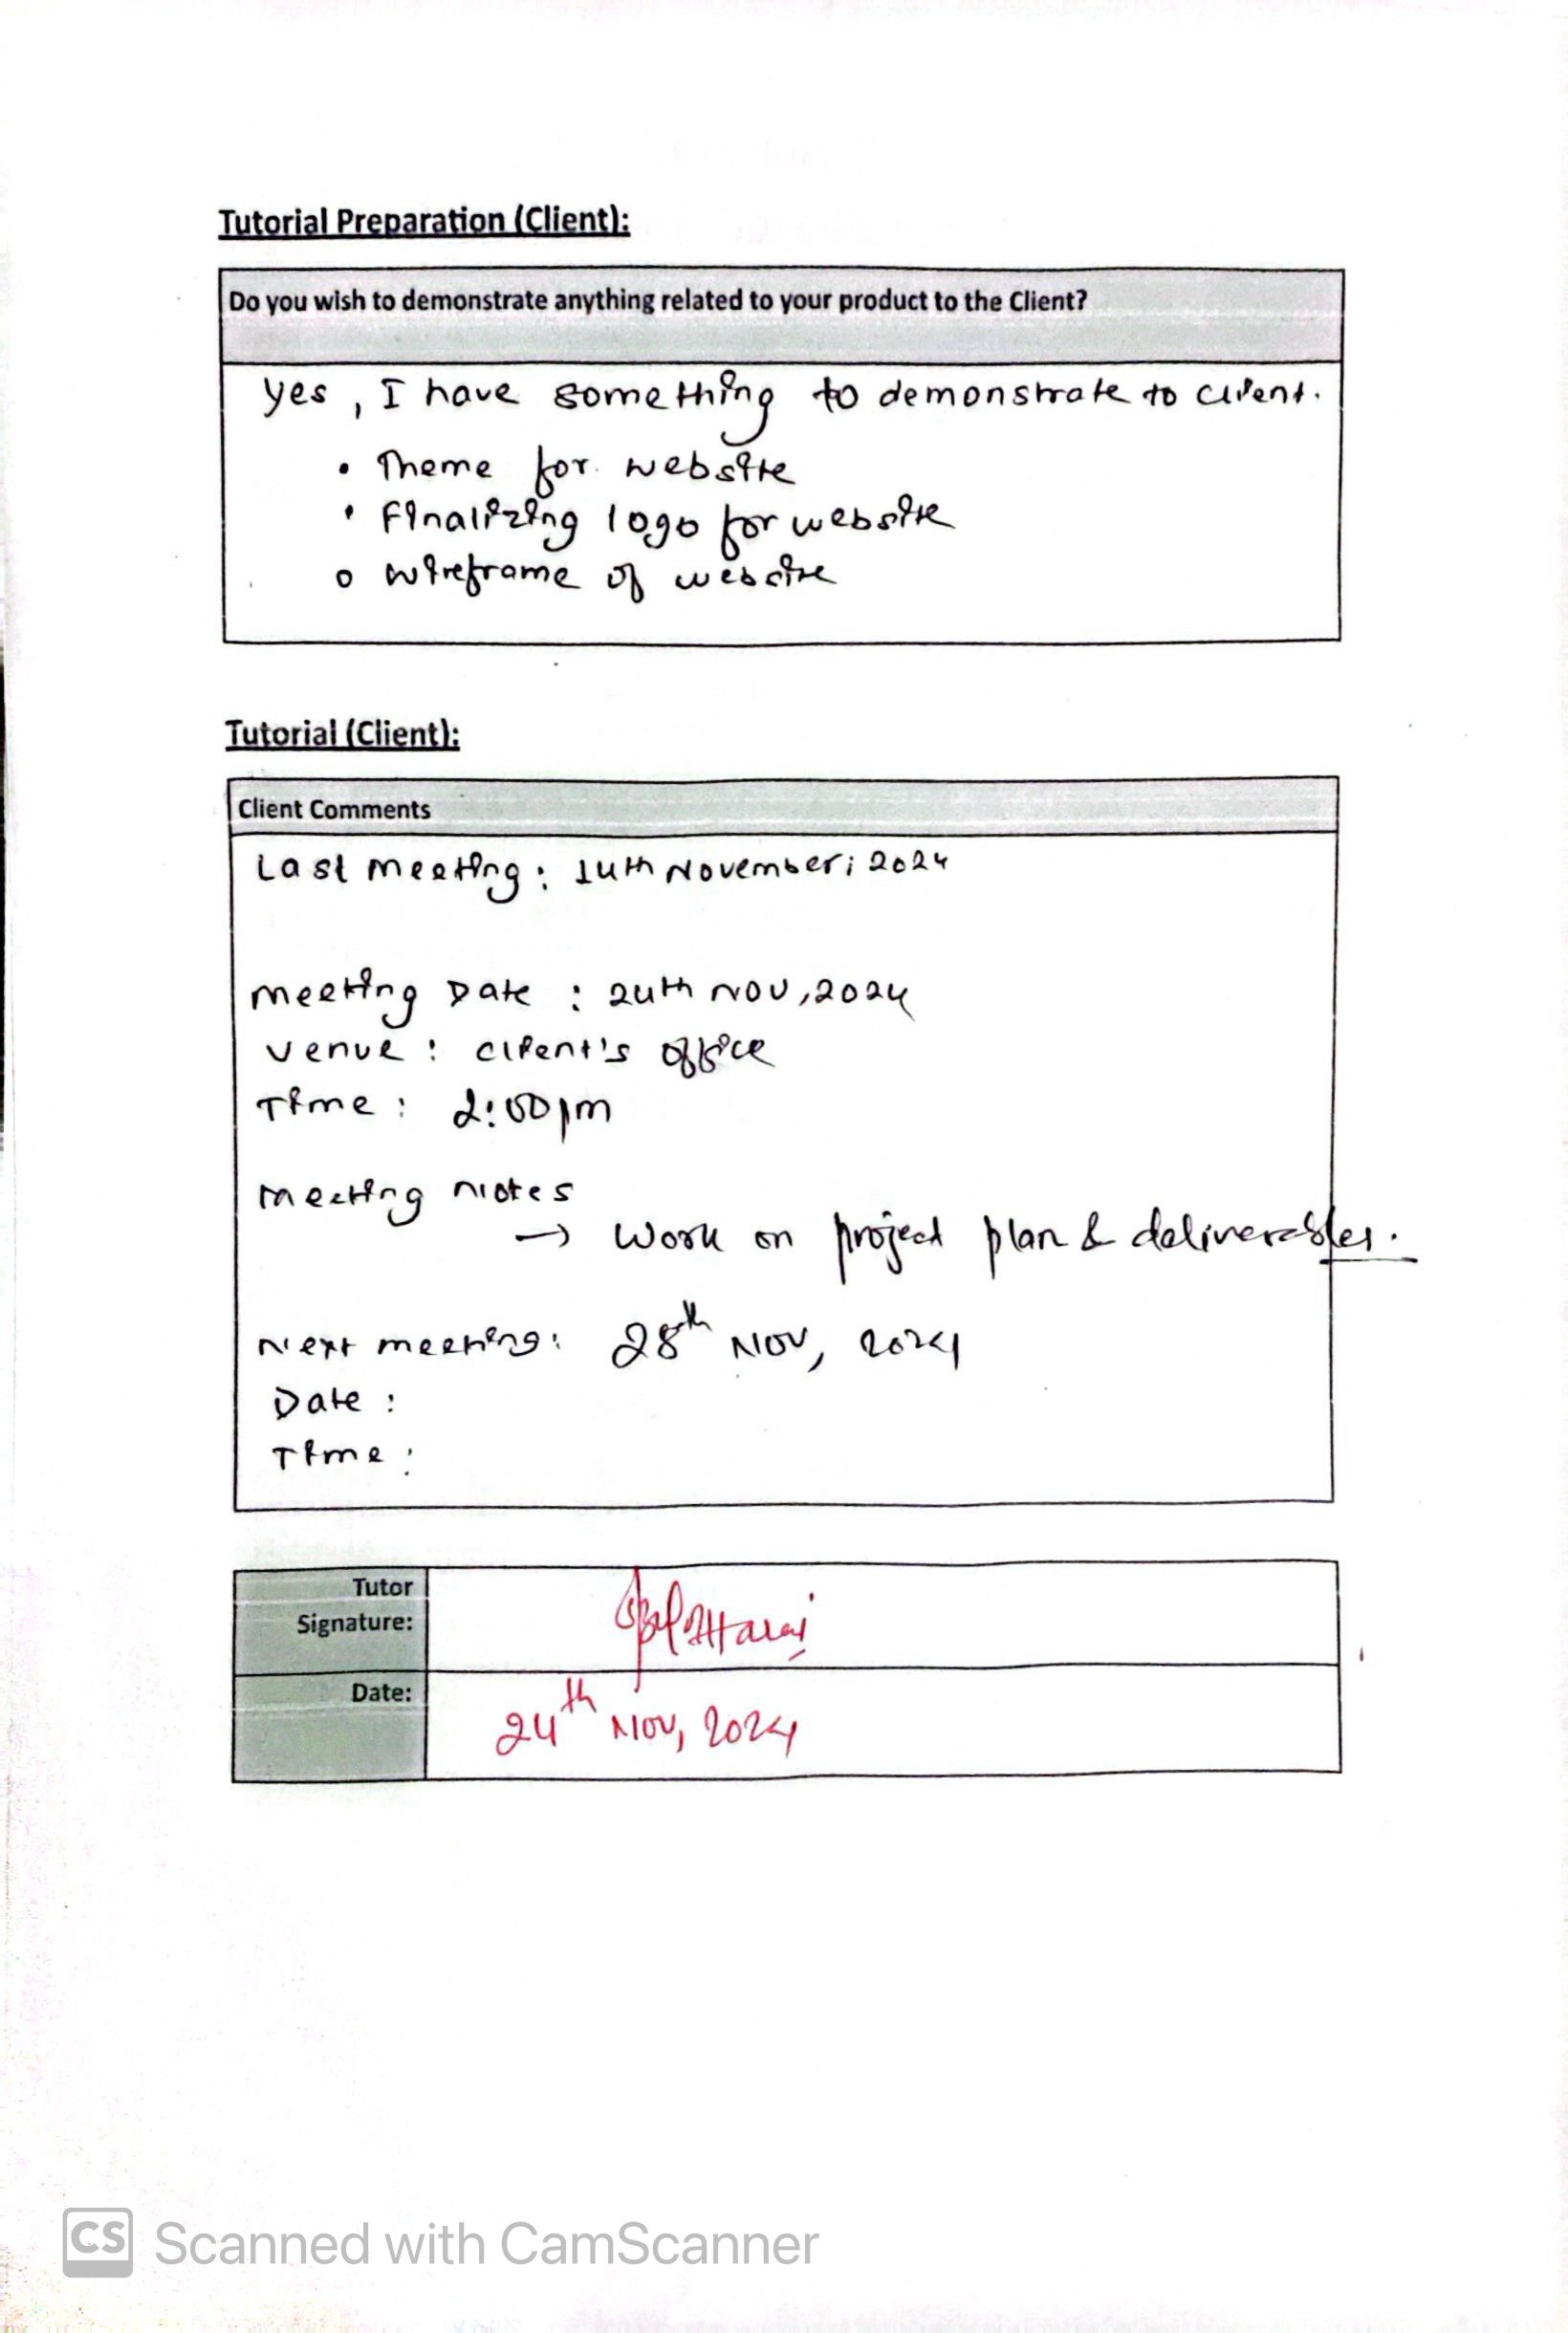 Tutorial Preparation (Client):
Do you wish to demonstrate anything related to your product to the Client?
Yes, I have something to demonstrate to client.
• Theme for website
• Finalizing logo for website
• wireframe of website
Tutorial (Client):
Client Comments
Last meeting: 14th November, 2024
meeting Date : 24th Nov, 2024
Venue : client's office
Time : 2:00pm
meeting notes
→ Work on project plan & deliverables.
Next meeting: 28th Nov, 2024
Date :
Time :
Tutor
Signature:
Date:
24th Nov, 2024
CS Scanned with CamScanner